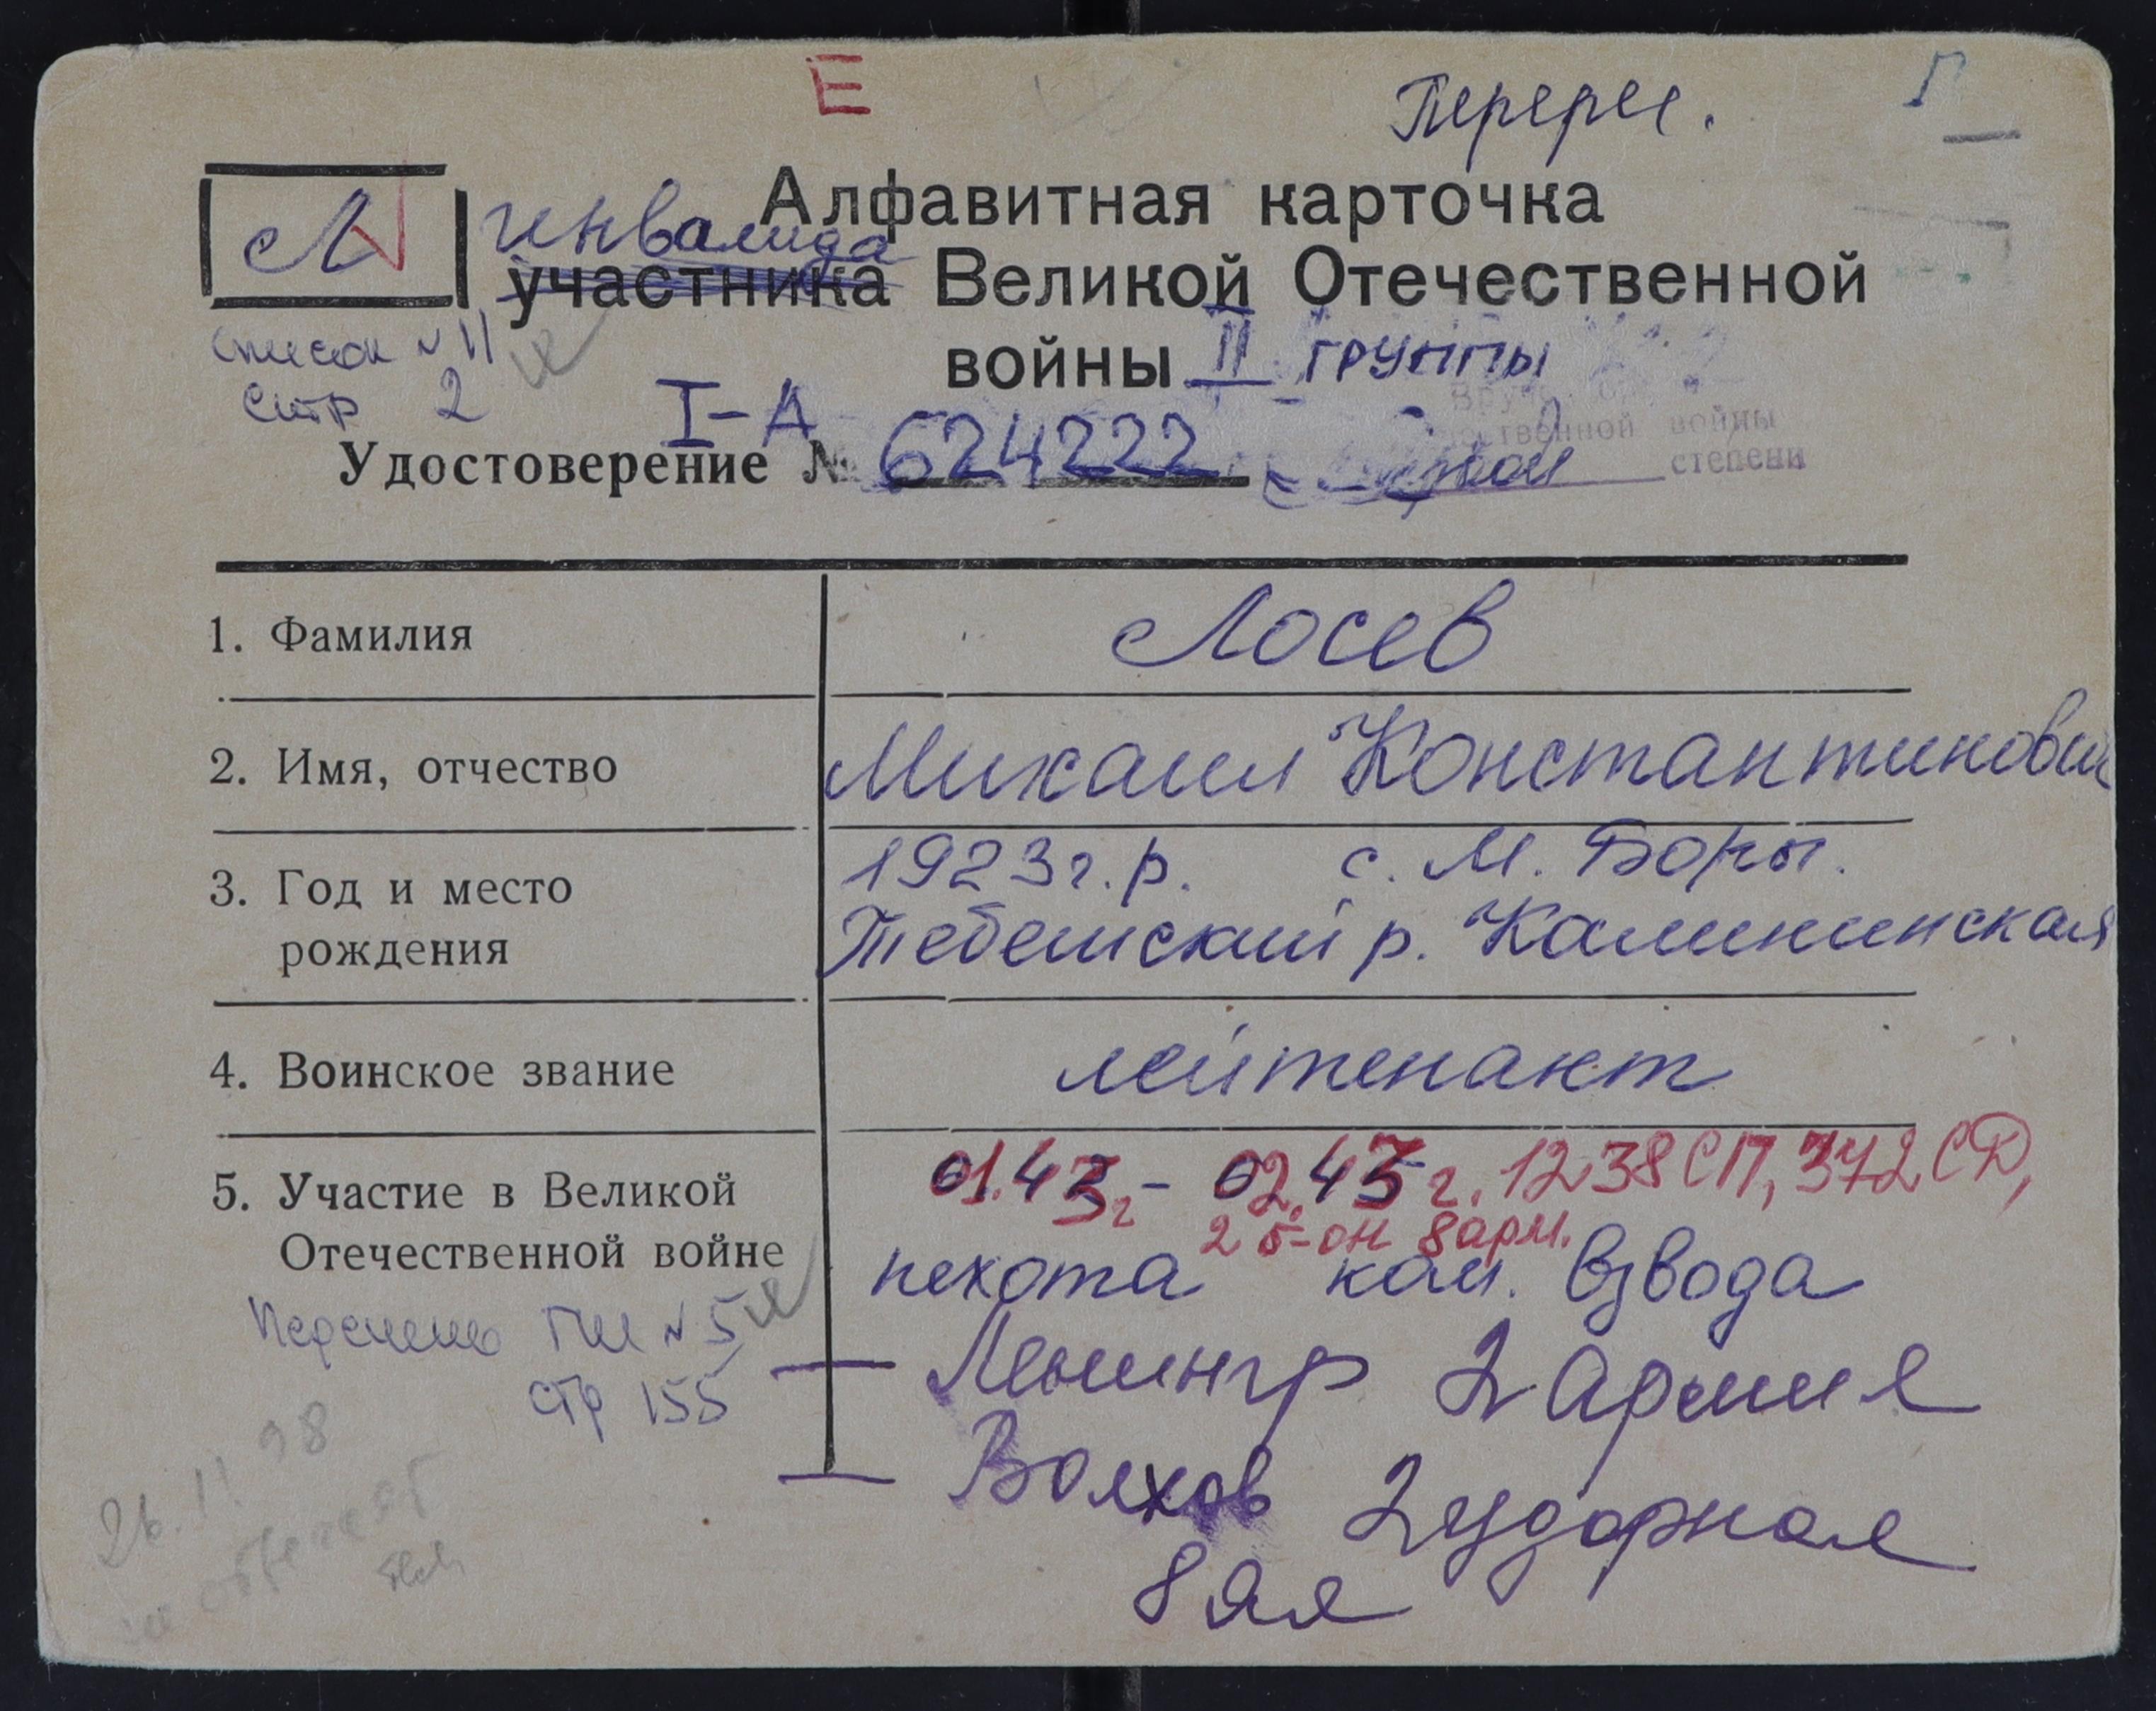 Е
Перерег.
Г
Л
Алфавитная карточка
инвалида
участника Великой Отечественной
войны II группы
Список № 11
стр 2
I-А
Удостоверение № 624222
ественной войны
степени
1. Фамилия
Лосев
2. Имя, отчество
Михаил Константинович
3. Год и место
рождения
1923 г.р. с. М. Боры.
р. Калининская
4. Воинское звание
лейтенант
5. Участие в Великой
Отечественной войне
01.43г - 02.43г. 1238 СП, 372 СД,
2 б-он 8 арм.
пехота ком. взвода
ГШ № 5
стр 155
Ленингр 2 Армия
Волхов 2 ударная
8 ая
26.11 98